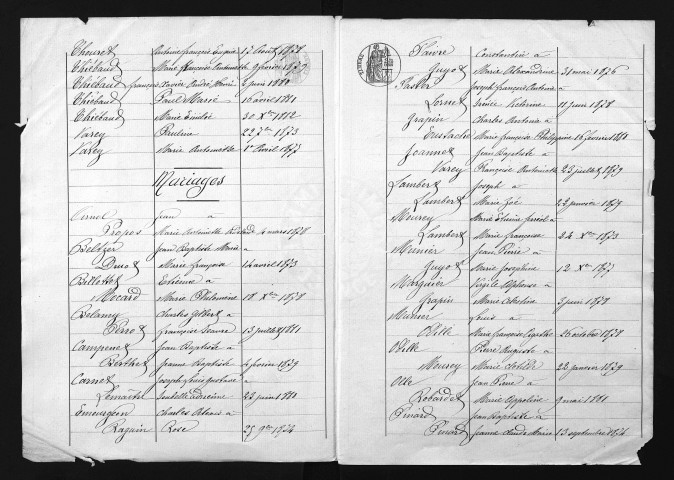 Thouret Antoine François Eugène 17 Août 1878
Thiébaud Marie Françoise Antoinette 9 février 1879
Thiébaud François Xavier André Marie 6 juin 1880
Thiébaud Paul Marie 16 avril 1881
Thiébaud Marie Emélie 30 Xbre 1882
Varey Pauline 22 7bre 1873
Varey Marie Antoinette 1er Avril 1877
Mariages
Jean à
Propes Marie Antoinette 4 mars 1878
Beltzer Jean Baptiste Marie à
Druot Marie françoise 14 avril 1873
Billottet Etienne à
Mocard Marie Philomène 18 Xbre 1878
Belamy Charles Gilbert à
Perrot françoise Jeanne 13 juillet 1881
Campenet Jean Baptiste à
Berthet Jeanne Baptiste 4 février 1879
Carnet Joseph Louis Gustave à
Lemaître 28 juin 1880
Emourgeon Charles Alexis à
Raguin Rose 25 9bre 1874
Faivre Constantin à
Guyot Marie Alexandrine 31 mai 1876
Joseph François Antoine à
Lornet Irénée 11 juin 1878
Grapin Charles Antoine à
Eustache Marie françoise Philippine 16 février 1880
Jeannet Jean Baptiste à
Varey Françoise Antoinette 23 juillet 1879
Lambert Joseph à
Lambert Marie Zoé 22 janvier 1879
Mourey
Lambert Marie françoise 24 Xbre 1873
Meunier Jean Pierre à
Guyot Marie Joséphine 12 Xbre 1877
Marguier Virgile Alphonse à
Grapin Marie Célestine 3 juin 1878
Munier Louis à
Odille Marie françoise 26 octobre 1878
Odille Pierre Auguste à
Mourey Marie Clotilde 22 janvier 1879
Jean Pierre à
Robardet Marie Appoline 9 mai 1881
Pinard Jean Baptiste à
Pinard Jeanne Claude Marie 13 septembre 1874